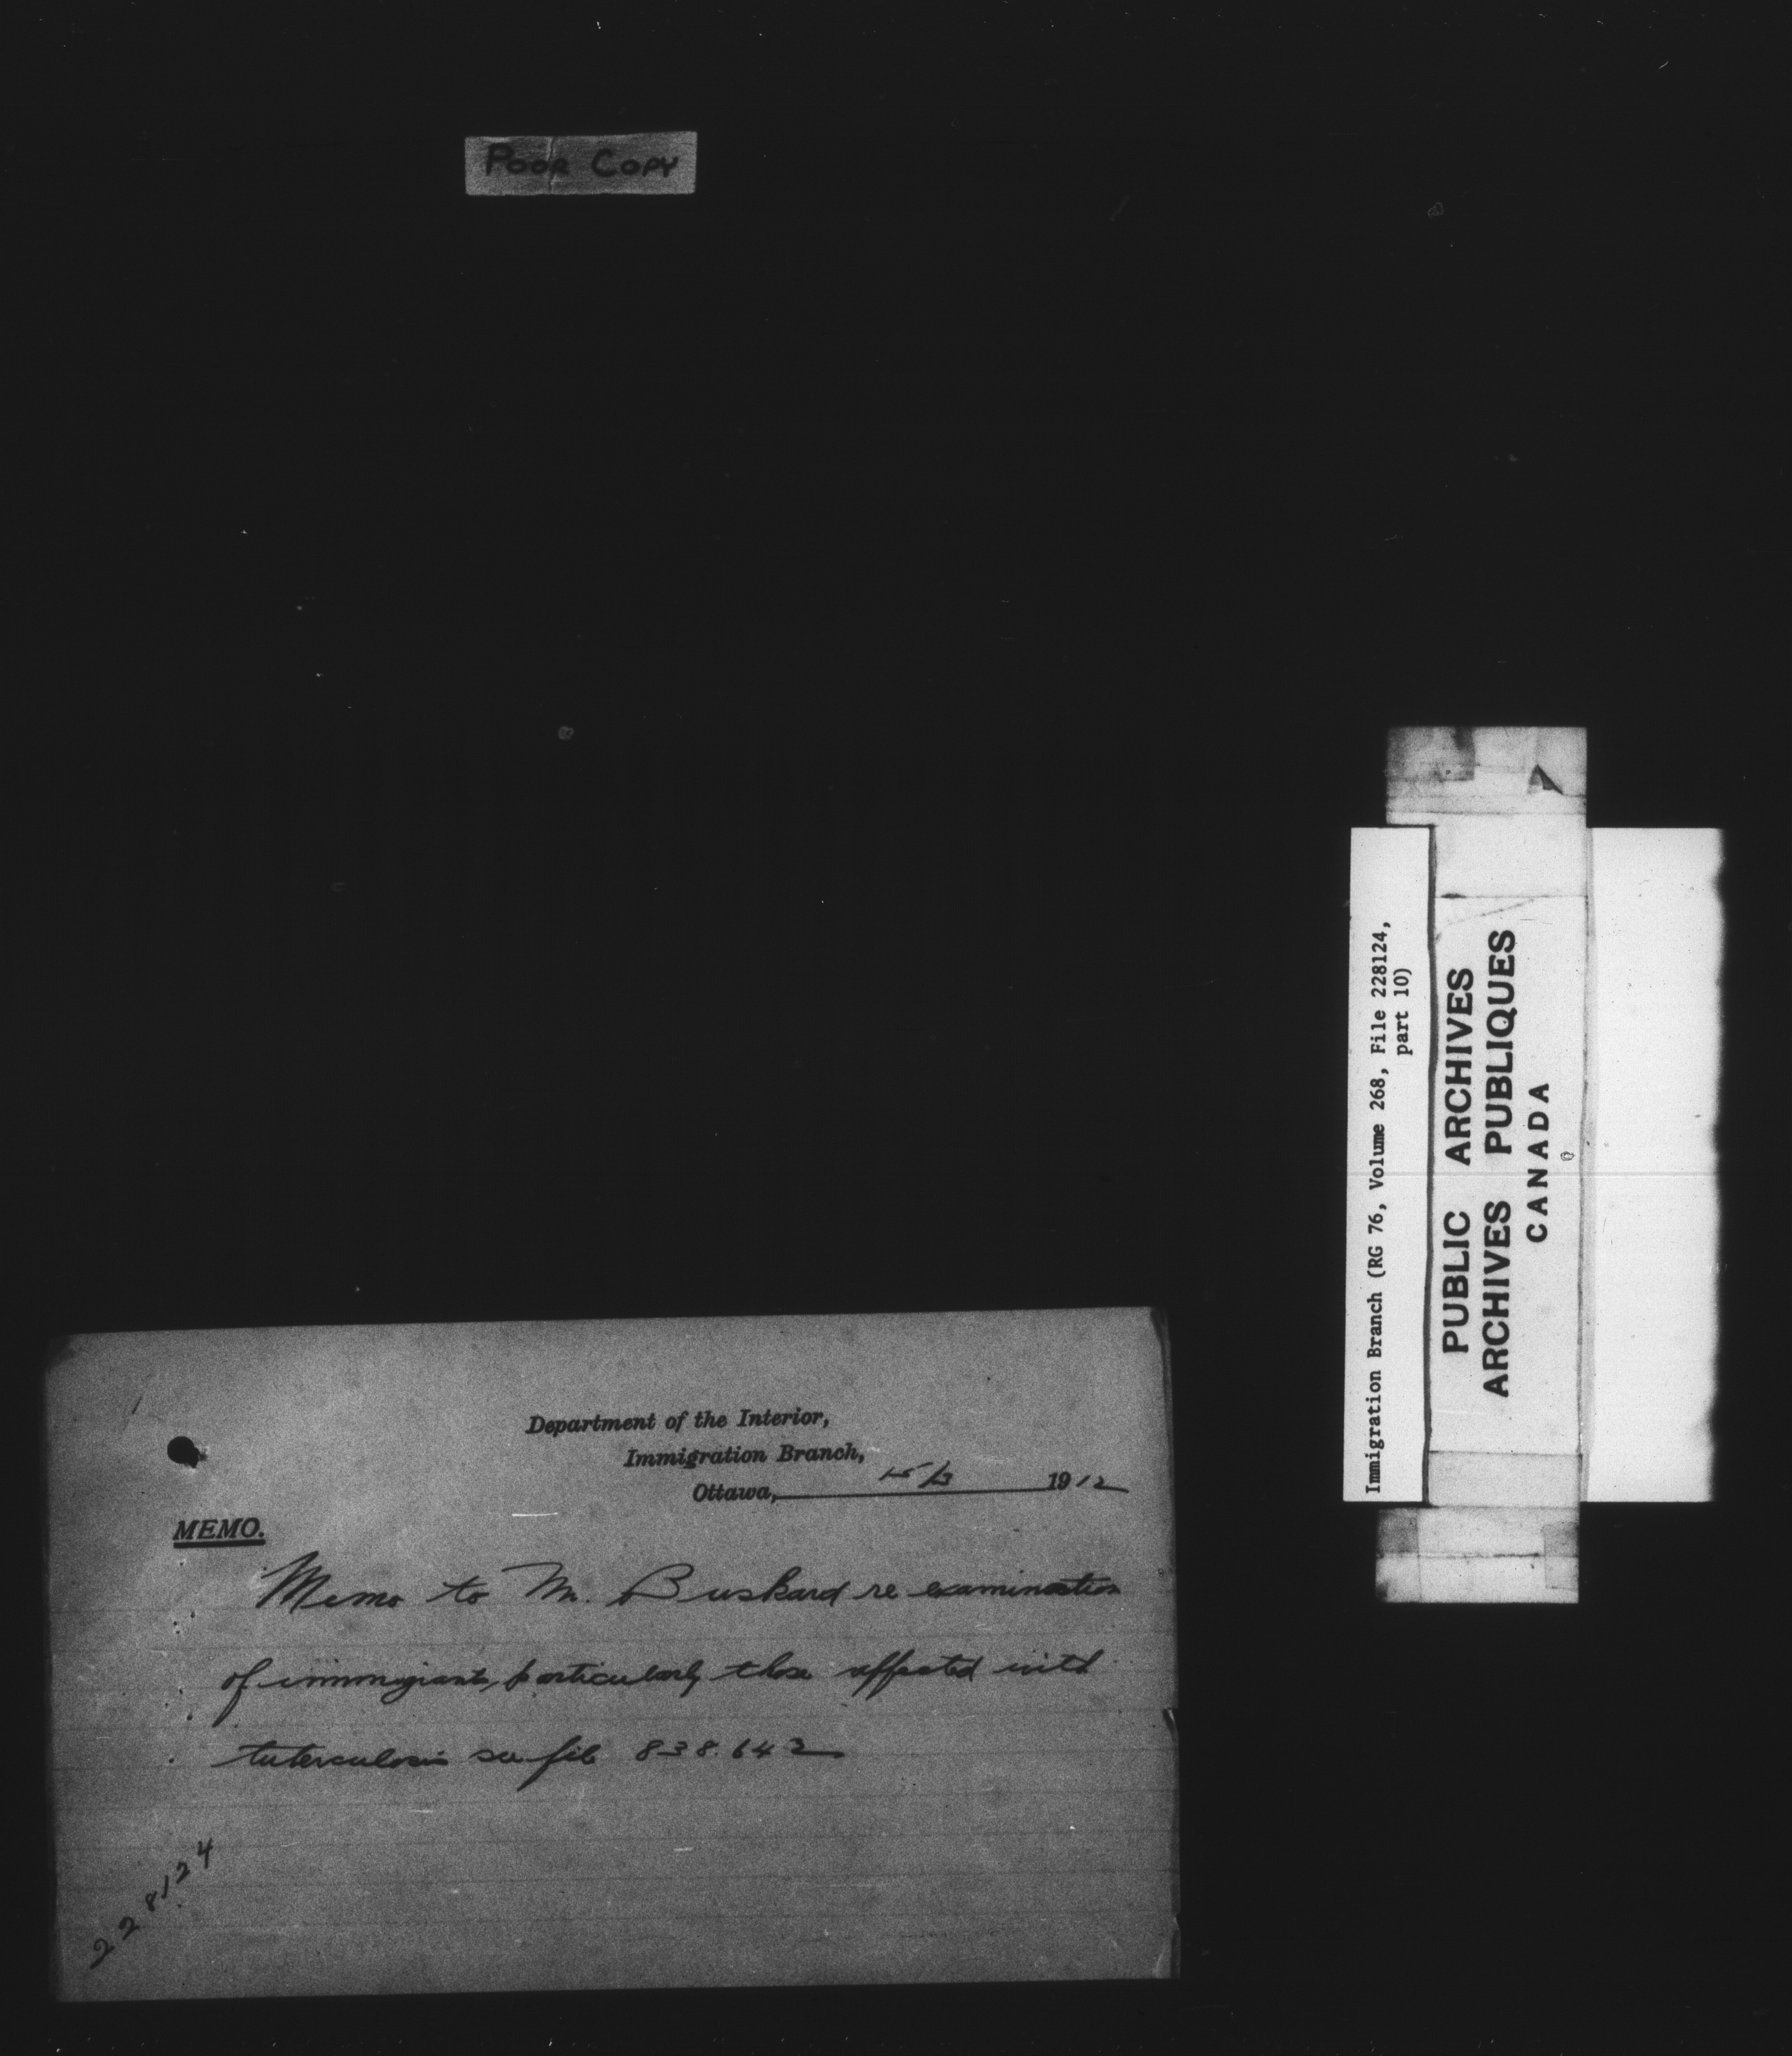 POOR COPY
Immigration Branch (RG 76, Volume 268, File 228124,
part 10)
PUBLIC ARCHIVES
ARCHIVES PUBLIQUES
CANADA
Department of the Interior,
Immigration Branch,
Ottawa, 15/3 1912
MEMO.
Memo to Mr. Buskard re examination
of immigrants, particularly those affected with
tuterculosis see file 838.642
228124